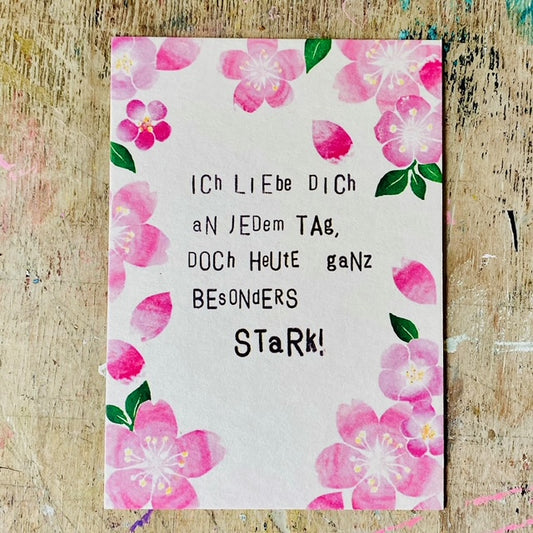 ICh LIEbe DICh
aN JEDem TAg,
DOCh HeUtE gaNZ
BEsONdERS
STaRk!